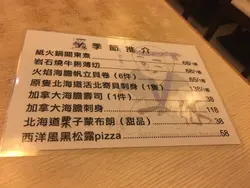 季節推介
紙火鍋關東煮
岩石燒牛肋薄切 68/份
火焰海膽帆立貝卷（6件） 88/份
原隻北海道活北寄貝刺身（1隻）
加拿大海膽壽司（1件） 38
加拿大海膽刺身 118
北海道栗子蒙布朗（甜品） 38
西洋風黑松露pizza 58